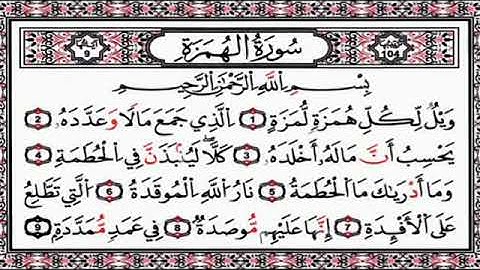 آياتها 9 سُورَةُ الهُمَزَةِ 104
بِسْمِ اللَّهِ الرَّحْمَٰنِ الرَّحِيمِ
وَيْلٌ لِّكُلِّ هُمَزَةٍ لُّمَزَةٍ 1 الَّذِي جَمَعَ مَالًا وَعَدَّدَهُ 2
يَحْسَبُ أَنَّ مَالَهُ أَخْلَدَهُ 3 كَلَّا لَيُنْبَذَنَّ فِي الْحُطَمَةِ 4
وَمَا أَدْرَىٰكَ مَا الْحُطَمَةُ 5 نَارُ اللَّهِ الْمُوقَدَةُ 6 الَّتِي تَطَّلِعُ
عَلَى الْأَفْئِدَةِ 7 إِنَّهَا عَلَيْهِم مُّوصَدَةٌ 8 فِي عَمَدٍ مُّمَدَّدَةٍ 9